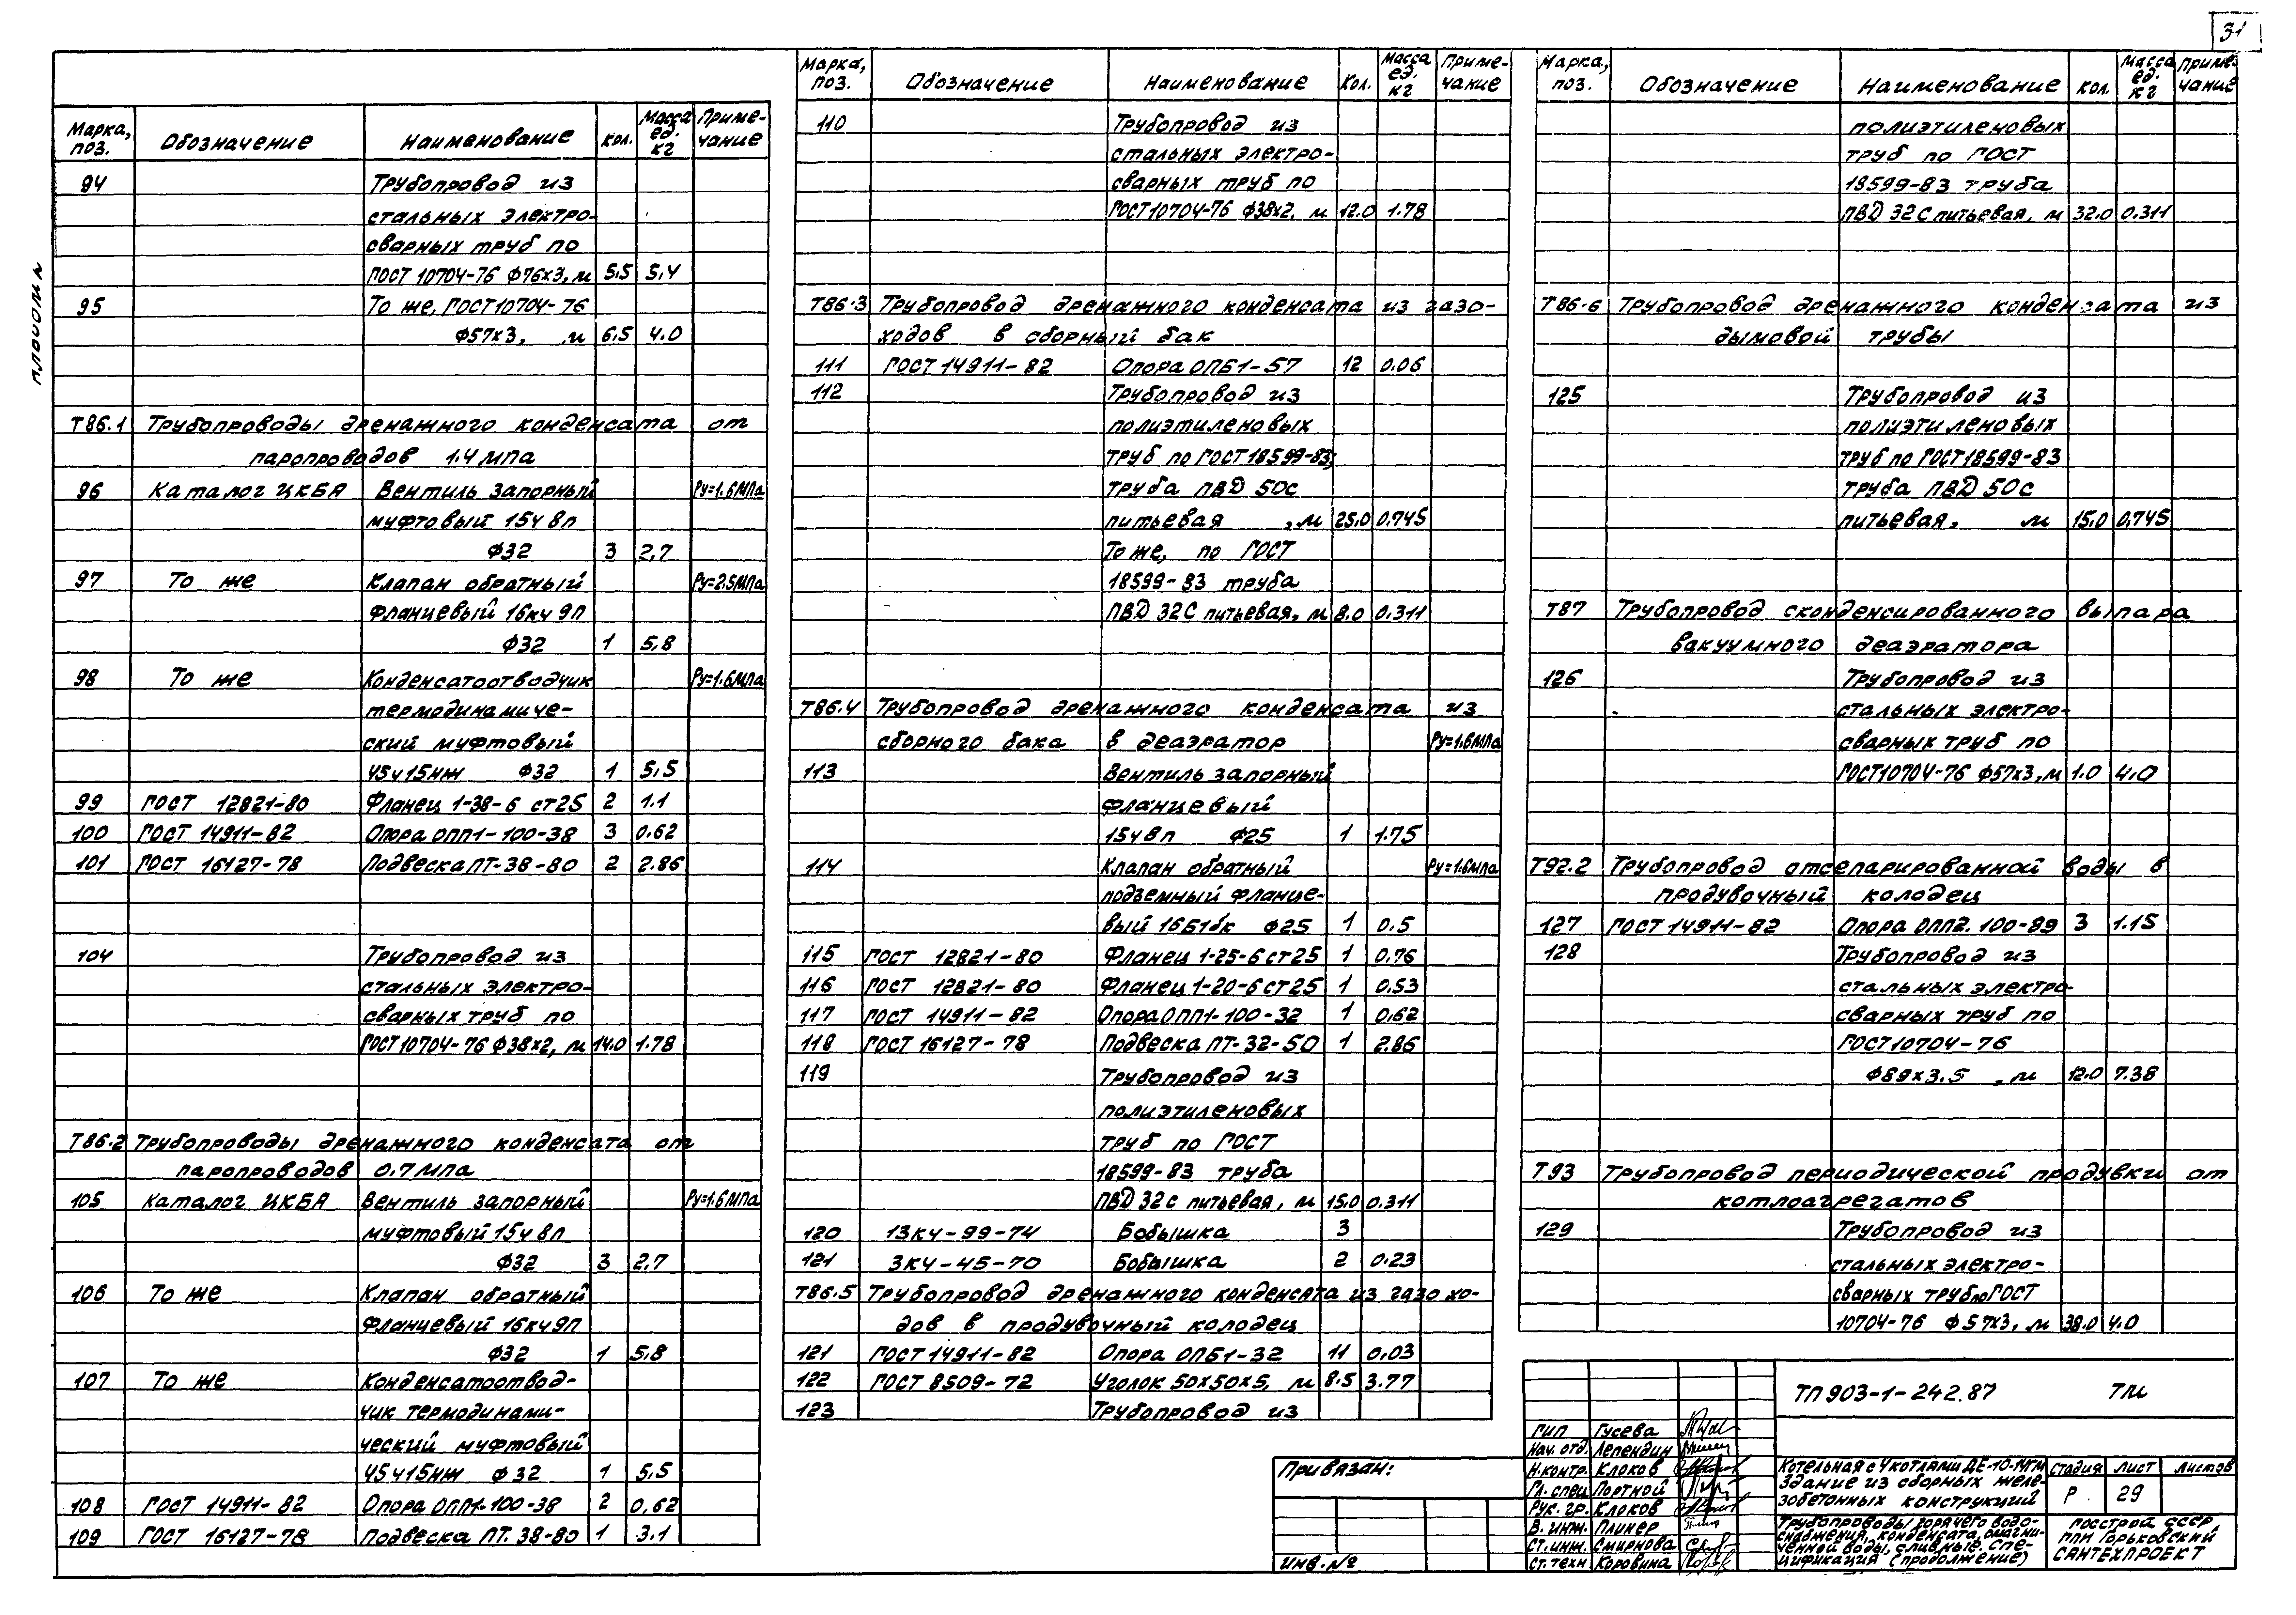 31
Марка, поз. Обозначение Наименование Кол. Масса ед. кг Примечание
94 Трубопровод из
стальных электро-
сварных труб по
ГОСТ 10704-76 Ф76х3, м 5.5 5,4
95 То же, ГОСТ 10704-76
Ф57х3, м 6.5 4.0
Т86.1 Трубопроводы дренажного конденсата от
паропроводов 1.4 мпа
96 Каталог ЦКБА Вентиль запорный Ру=1.6МПа
муфтовый 15ч8п
Ф32 3 2,7
97 То же Клапан обратный Ру=2.5МПа
фланцевый 16кч9п
Ф32 1 5,8
98 То же Конденсатоотводчик Ру=1.6мпа
термодинамиче-
ский муфтовый
45ч15нж Ф32 1 5,5
99 ГОСТ 12821-80 Фланец 1-38-6 ст25 2 1.1
100 ГОСТ 14911-82 Опора ОПП1-100-38 3 0.62
101 ГОСТ 16127-78 Подвеска ПТ-38-80 2 2.86
104 Трубопровод из
стальных электро-
сварных труб по
ГОСТ 10704-76 Ф38х2, м 14.0 1.78
Т86.2 Трубопроводы дренажного конденсата от
паропроводов 0.7 мпа
105 Каталог ЦКБА Вентиль запорный Ру=1.6МПа
муфтовый 15ч8п
Ф32 3 2,7
106 То же Клапан обратный
Фланцевый 16кч9п
Ф32 1 5,8
107 То же Конденсатоотвод-
чик термодинами-
ческий муфтовый
45ч15нж Ф32 1 5,5
108 ГОСТ 14911-82 Опора ОПП1-100-38 2 0,62
109 ГОСТ 16127-78 Подвеска ПТ. 38-80 1 3.1
Марка, поз. Обозначение Наименование Кол. Масса ед. кг Примечание
110 Трубопровод из
стальных электро-
сварных труб по
ГОСТ 10704-76 Ф38х2, м 12.0 1.78
Т86.3 Трубопровод дренажного конденсата из газо-
ходов в сборный бак
111 ГОСТ 14911-82 Опора ОПБ1-57 12 0.06
112 Трубопровод из
полиэтиленовых
труб по ГОСТ 18599-83,
труба ПВД 50с
питьевая , м 25.0 0.745
То же, по ГОСТ
18599-83 труба
ПВД 32С питьевая, м 8.0 0.311
Т86.4 Трубопровод дренажного конденсата из
сборного бака в деаэратор Ру=1.6МПа
113 Вентиль запорный
фланцевый
15ч8п Ф25 1 1.75
114 Клапан обратный Ру=1.6мпа
подземный фланце-
вый 16Б1бк Ф25 1 0.5
115 ГОСТ 12821-80 Фланец 1-25-6 ст25 1 0,76
116 ГОСТ 12821-80 Фланец 1-20-6 ст25 1 0.53
117 ГОСТ 14911-82 Опора ОПП1-100-32 1 0.62
118 ГОСТ 16127-78 Подвеска ПТ-32-50 1 2.86
119 Трубопровод из
полиэтиленовых
труб по ГОСТ
18599-83 труба
ПВД 32с питьевая, м 15.0 0.311
120 13К4-99-74 Бобышка 3
121 3К4-45-70 Бобышка 2 0.23
Т86.5 Трубопровод дренажного конденсата из газохо-
дов в продувочный колодец
121 ГОСТ 14911-82 Опора ОПБ1-32 11 0,03
122 ГОСТ 8509-72 Уголок 50х50х5, м 8.5 3.77
123 Трубопровод из
Марка, поз. Обозначение Наименование Кол. Масса ед. кг Примечание
полиэтиленовых
труб по ГОСТ
18599-83 труба
ПВД 32С питьевая, м 32.0 0.311
Т86.6 Трубопровод дренажного конденсата из
дымовой трубы
125 Трубопровод из
полиэтиленовых
труб по ГОСТ 18599-83
труба ПВД 50с
питьевая, м 15.0 0,745
Т87 Трубопровод сконденсированного выпара
вакуумного деаэратора
126 Трубопровод из
стальных электро-
сварных труб по
ГОСТ 10704-76 Ф57х3, м 1.0 4.0
Т92.2 Трубопровод отсепарированной воды в
продувочный колодец
127 ГОСТ 14911-82 Опора ОПП2. 100-89 3 1.15
128 Трубопровод из
стальных электро-
сварных труб по
ГОСТ 10704-76
Ф89х3.5 , м 12.0 7.38
Т93 Трубопровод периодической продувки от
котлоагрегатов
129 Трубопровод из
стальных электро-
сварных труб по ГОСТ
10704-76 Ф57х3, м 38.0 4.0
Привязан:
Инв. №
ГИП Гусева
Нач. отд. Лепендин
Н.контр. Клоков
Гл. спец Портной
Рук. гр. Клоков
В. инж. Плинер
Ст. инж. Смирнова
Ст. техн Коровина
ТП 903-1-242.87 ТМ
Котельная с 4 котлами ДЕ-10-14ГМ
Здание из сборных желе-
зобетонных конструкций
Стадия Лист Листов
Р 29
Трубопроводы горячего водо-
снабжения, конденсата, омагни-
ченной воды, сливные. Спе-
цификация (продолжение)
Госстрой СССР
ГПИ Горьковский
САНТЕХПРОЕКТ